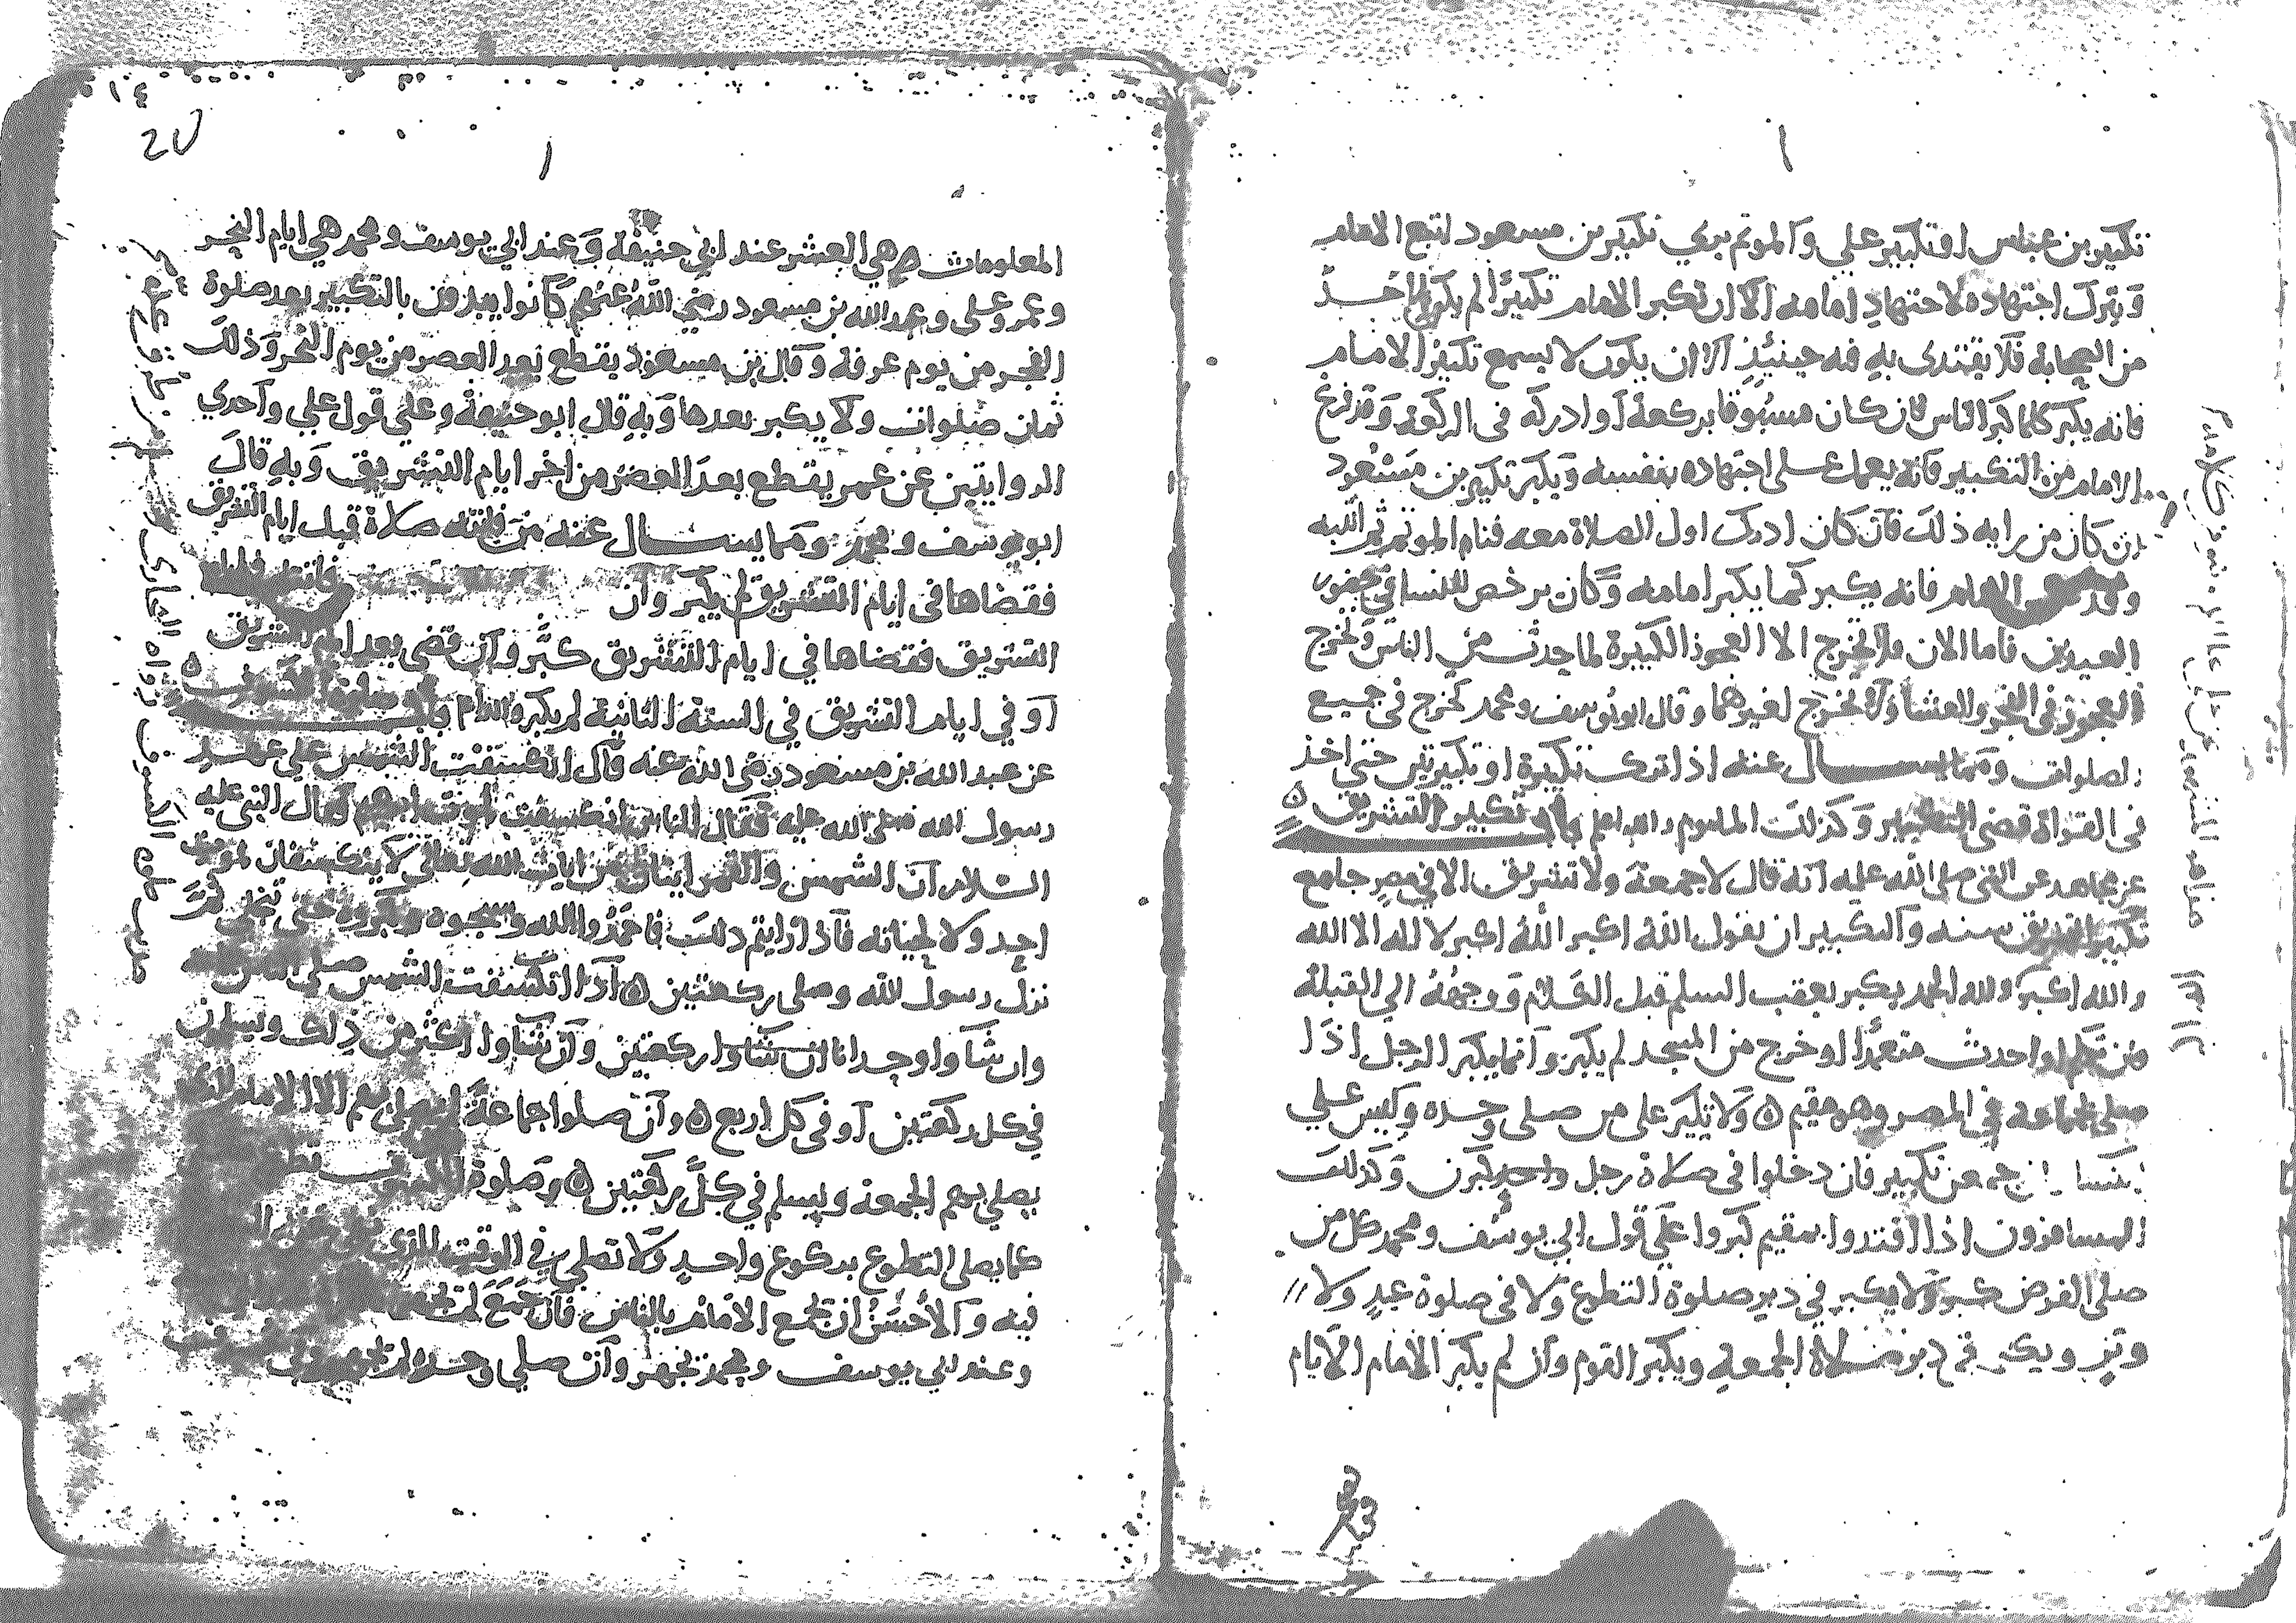 تكبير بن عباس او تكبير علي والموتم يري تكبير بن مسعود اتبع الامام
وَيترك اجتهاده لاجتهاد امامه الا ان تكبر الامام تكبيرًا لم يكن لاحد
من الصحابة فلا يقتدى به فه حينئذٍ الا ان يكون لا يسمع تكبير الامام
فانه يكبر كلما كبر الناس فان كان مسبوقا بركعة او ادركه فى الركوع وقد فرغ
الامام من التكبير فانه يعمل على اجتهاده بنفسه ويكبر تكبير بن مسعود
ان كان من رايه ذلك فان كان ادرك اول الصلاة معه فنام الموتم ثم انتبه
وقد الامام فانه يكبر كما يكبر امامه وكان يرخص للنسا في حضور
العيدين فاما الان فلا تخرج الا العجوز الكبيرة لما حدث من الناس وتخرج
العجوز فى الفجر والعشا ولا تخرج لغيرهما وقال ابو يوسف ومحمد تخرج فى جميع
الصلوات ومما يسال عنه اذا ترك تكبيرة او تكبيرتين حتى اخذ
فى القراة قضى التكبير وكذلك الماموم والله اعلم باب تكبير التشريق ۵
عن مجاهد عن النبي صلى الله عليه انه قال لا جمعة ولا تشريق الا في مصر جامع
تكبير التشريق سنه والتكبير ان يقول الله اكبر الله اكبر لا اله الا الله
والله اكبر ولله الحمد يكبر بعقب السلم قبل الكلام ووجهه الي القبلة
فمن تكلم او احدث متعمدًا او خرج من المسجد لم يكبر وانما يكبر الرجل اذا
صلى بجماعة في المصر وهو مقيم ۵ ولا تكبير على من صلى وحده وليس علي
النسا جمعن تكبير فان دخلوا فى صلاة رجل واحد كبرن وكذلك
المسافرون اذا اقتدوا بمقيم كبروا على قول ابي يوسف ومحمد كل من
صلى الفرض كبر ولا يكبر في دبر صلوة التطوع ولا فى صلوة عيد ولا //
وتر ويكبر في دبر صلاة الجمعة ويكبر القوم وان لم يكبر الامام الايام
١٤
20
المعلومات هي العشر عند ابي حنيفة وعند ابي يوسف ومحمد هي ايام النحر
وعمر وعلى وعبد الله بن مسعود رضي الله عنهم كانوا يبدون بالتكبير بعد صلوة
الفجر من يوم عرفة وقال بن مسعود يقطع بعد العصر من يوم النحر وذلك
ثمان صلوات ولا يكبر بعدها وبه قال ابو حنيفة وعلى قول علي واحدي
الروايتين عن عمر يقطع بعد العصر من اخر ايام التشريق وبه قال
ابو يوسف ومحمد ومما يسال عنه من فاتته صلاة قبل ايام التشريق
فقضاها فى ايام التشريق لم يكبر وان
التشريق فقضاها في ايام التشريق كبر وان قضى بعد ايام التشريق
او في ايام التشريق في السنة الثانية لم يكبر باب صلوة الكسوف ۵
عن عبد الله بن مسعود رضى الله عنه قال انكسفت الشمس على عهد
رسول الله صلى الله عليه فقال الناس انكسفت لموت ابراهيم فقال النبي عليه
السلام ان الشمس والقمر ايتان من ايات الله تعالى لا ينكسفان لموت
احد ولا لحياته فاذا رايتم ذلك فاحمدوا الله وسبحوه وكبروه حتى تنجلى ثم
نزل رسول الله وصلى ركعتين ۵ اذا انكسفت الشمس صلى
وان شاوا وحدانا ان شاوا ركعتين وان شاوا اكثر من ذلك ويسلمون
في كل ركعتين او فى كل اربع ۵ وان صلوا جماعة لم يصل بهم الا الامام الذي
يصلي بهم الجمعة ويسلم في كل ركعتين ۵ وصلوة الكسوف
كما يصلى التطوع بركوع واحد ولا تصلي في الوقت الذي
فيه والاحسن ان يجمع الامام بالناس فان جمع لم
وعند ابي يوسف ومحمد يجهر وان صلي وحده لم